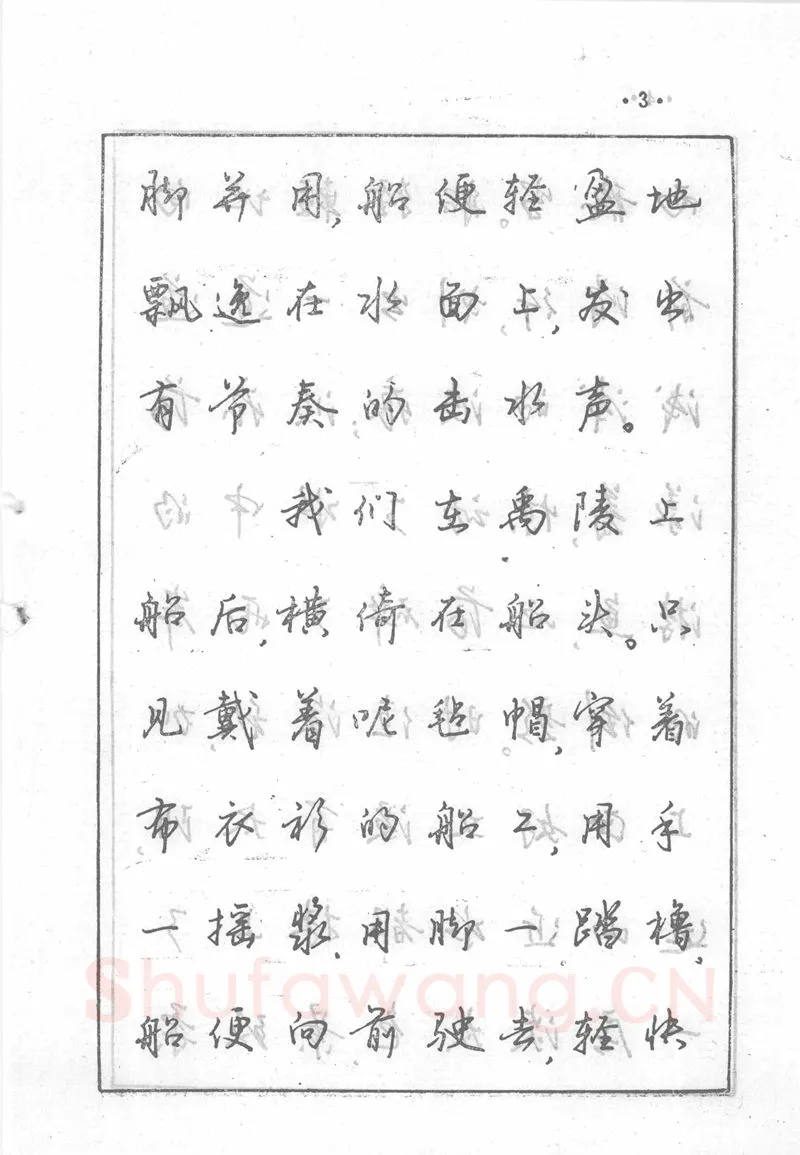 ·3·
脚并用,船便轻盈地
飘逸在水面上,发出
有节奏的击水声。
我们在禹陵上
船后,横倚在船头。只
见戴着呢毡帽,穿着
布衣衫的船工,用手
一摇浆,用脚一踏橹,
船便向前驶去,轻快
Shufawang.CN